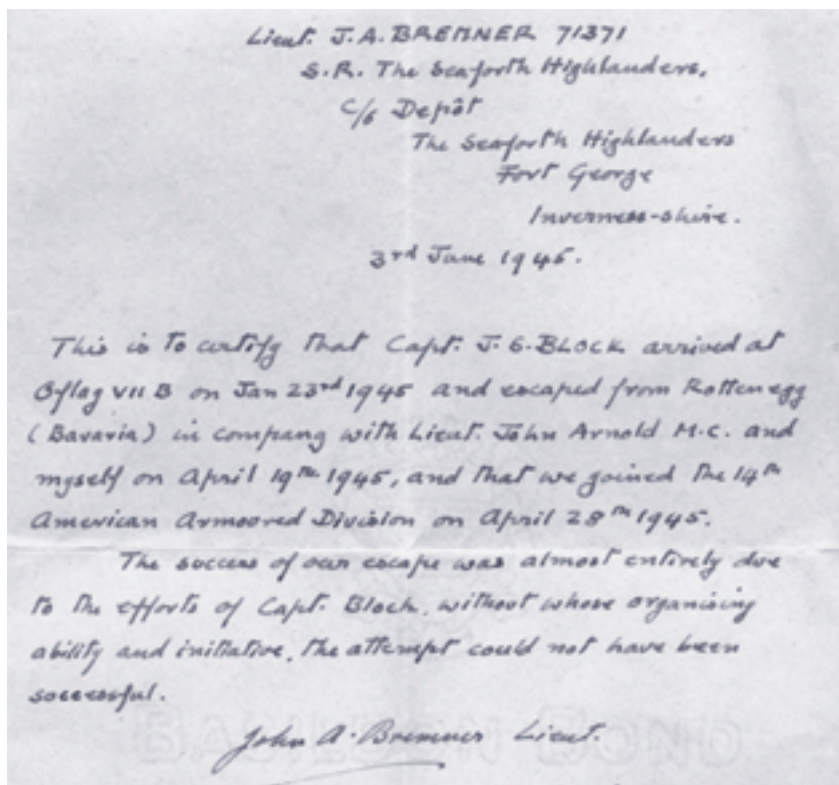 Lieut. J.A. BREMNER 71371
S.R. The Seaforth Highlanders.
C/o Depôt
The Seaforth Highlanders
Fort George
Inverness-shire.
3rd June 1945.
This is to certify that Capt. J. G. BLOCK arrived at
Oflag VII B on Jan 23rd 1945 and escaped from Rottenegg
(Bavaria) in company with Lieut. John Arnold M.C. and
myself on April 19th 1945, and that we joined the 14th
American Armoured Division on April 28th 1945.
The success of our escape was almost entirely due
to the efforts of Capt. Block, without whose organising
ability and initiative, the attempt could not have been
successful.
John A. Bremner Lieut.
BOND